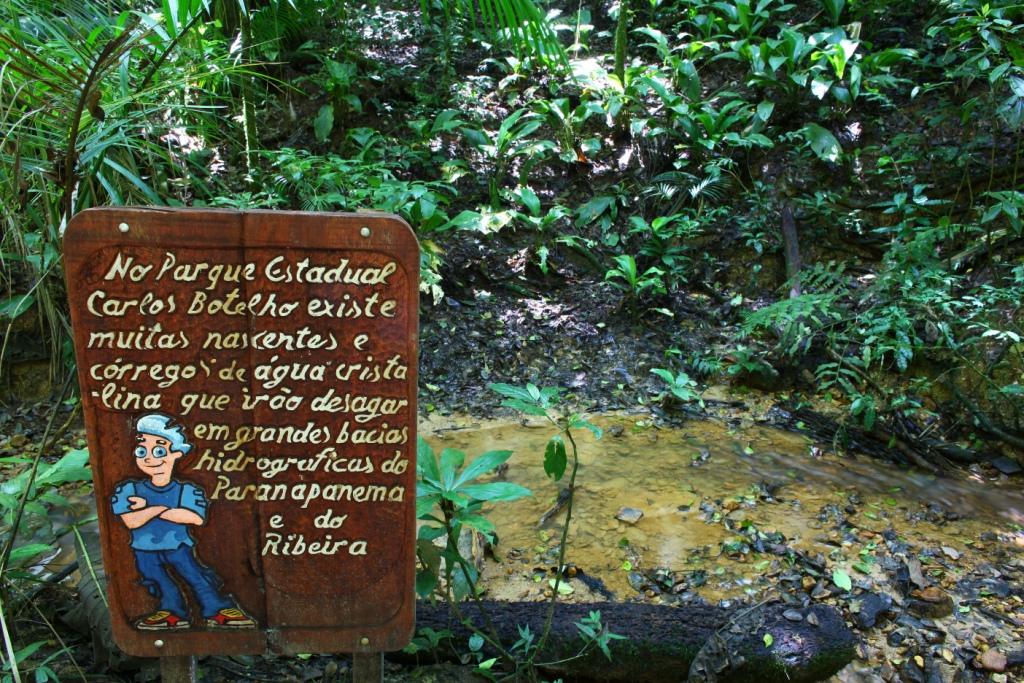 No Parque Estadual
Carlos Botelho existe
muitas nascentes e
córregos de água crista
-lina que irão desagar
em grandes bacias
hidrograficas do
Paranapanema
e do
Ribeira